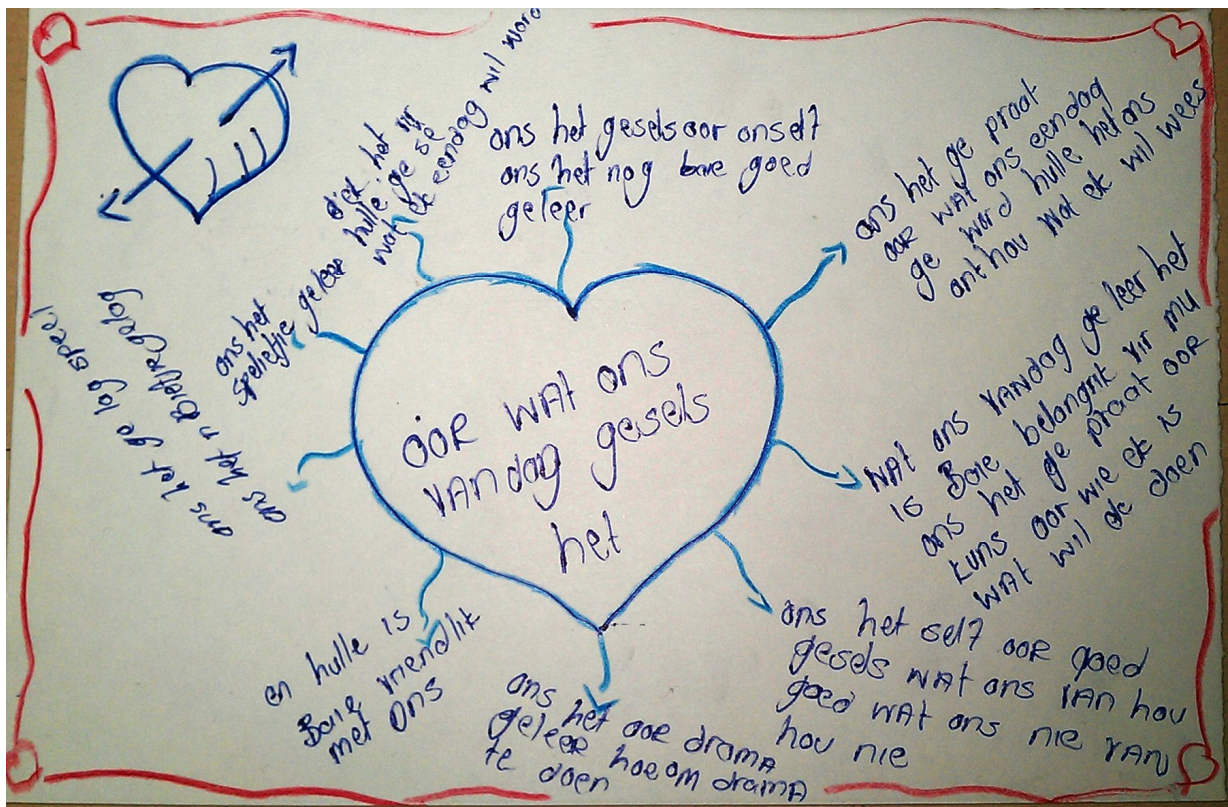 oor WAt ons
vandag gesels
het
ons het gesels oor onself
ons het nog baie goed
geleer
ons het ge praat
oor wat ons eendag
ge word hulle het ons
ont hou wat ek wil wees
WAt ons vandag ge leer het
is Baie belangrik vir my
ons het ge praat oor
kuns oor wie ek is
WAt wil ek doen
ons het self oor goed
gesels WAt ons van hou
goed WAt ons nie van
hou nie
ons het oor drama
geleer hoe om drama
te doen
en hulle is
Baie vriendlik
met ons
ons het ge lag speel
ons het n Bietjie gelag
ons het
speletjie geleer
hulle ge se
wat ek eendag wil word